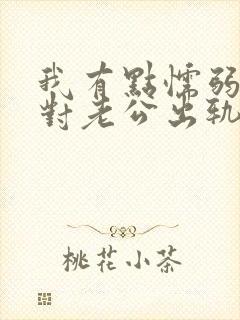 我有點懦弱
對老公出軌
桃花小茶